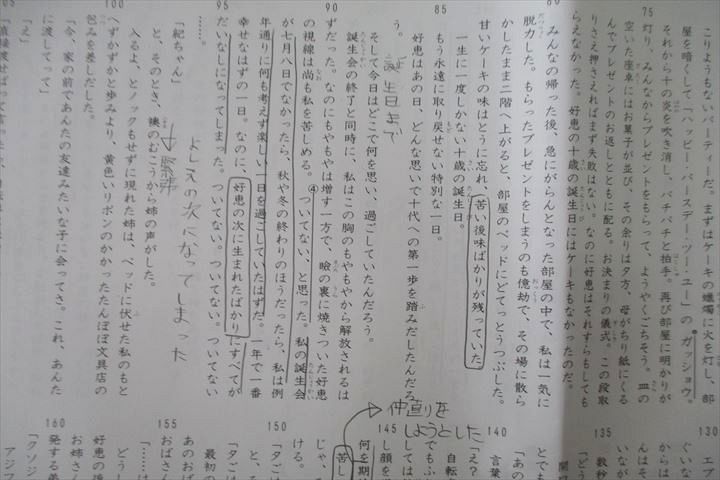 こりようもないパーティーだ。まずはケーキの蠟燭に火を灯し、部
屋を暗くして「ハッピー・バースデー・ツー・ユー」のガッショウ。
それから十の炎を吹き消し、パチパチと拍手。再び部屋に明かりが
75
灯り、みんなからプレゼントをもらって、ようやくごちそう。皿の
空いた座卓にはお菓子が並び、その余りは夕方、母がちり紙にくる
んでプレゼントのお返しとともに配る。お決まりの儀式。この段取
りさえ押さえればまず失敗はない。なのに好恵はそれすらもしても
らえなかった。好恵の十歳の誕生日にはケーキもなかったのだ。
80
みんなの帰った後、急にがらんとなった部屋の中で、私は一気に
脱力した。もらったプレゼントをしまうのも億劫で、その場に散ら
かしたまま二階へ上がると、部屋のベッドにどてっとうつぶした。
甘いケーキの味はとうに忘れ、苦い後味ばかりが残っていた。
一生に一度しかない十歳の誕生日。
85
もう永遠に取り戻せない特別な一日。
好恵はあの日、どんな思いで十代への第一歩を踏みだしたんだろ
う。
誕生日まで
そして今日はどこで何を思い、過ごしていたんだろう。
誕生会の終了と同時に、私はこの胸のもやもやから解放されるは
90
ずだった。なのにもやもやは増す一方で、瞼の裏に焼きついた好恵
の視線は尚も私を苦しめる。④ついてない、と思った。私の誕生会
が七月八日でなかったら、秋や冬の終わりのほうだったら、私は例
年通りに何も考えず楽しい一日を過ごしていたはずだ。一年で一番
幸せなはずの一日。なのに、好恵の次に生まれたばかりにすべてが
95
だいなしになってしまった。ついてない。ついてない。ついてない
……。
よしえの次になってしまった
「紀ちゃん」
と、そのとき、襖のむこうから姉の声がした。
入るよ、とノックもせずに現れた姉は、ベッドに伏せた私のもと
100
へずかずかと歩みより、黄色いリボンのかかったたんぽぽ文具店の
包みを差しだした。
「今、家の前であんたの友達みたいな子に会ってさ。これ、あんた
に渡してって」
「え」
130
135
数秒
140
言葉
「え？
自転
145
仲直りを
しようとした
何を期
苦し
じゃ、
ける。
150
「タご
と、そ
「タごは
最初の
「……は
あのおば
155
おばさん
どうし
好恵の遠
お姉さん
発する義
160
「クソジ
アジフ